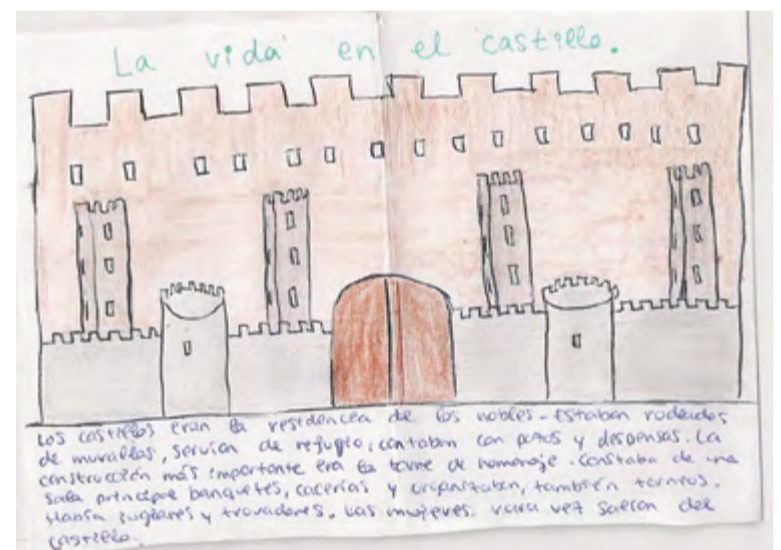 La vida en el castillo.
Los castillos eran la residencia de los nobles. Estaban rodeados
de murallas, servian de refugio, contaban con pozos y despensas. La
construcción más importante era la torre de homenaje. Constaba de una
sala principal banquetes, cacerías y organizaban, también torneos.
Había juglares y trovadores. Las mujeres rara vez salían del
castillo.